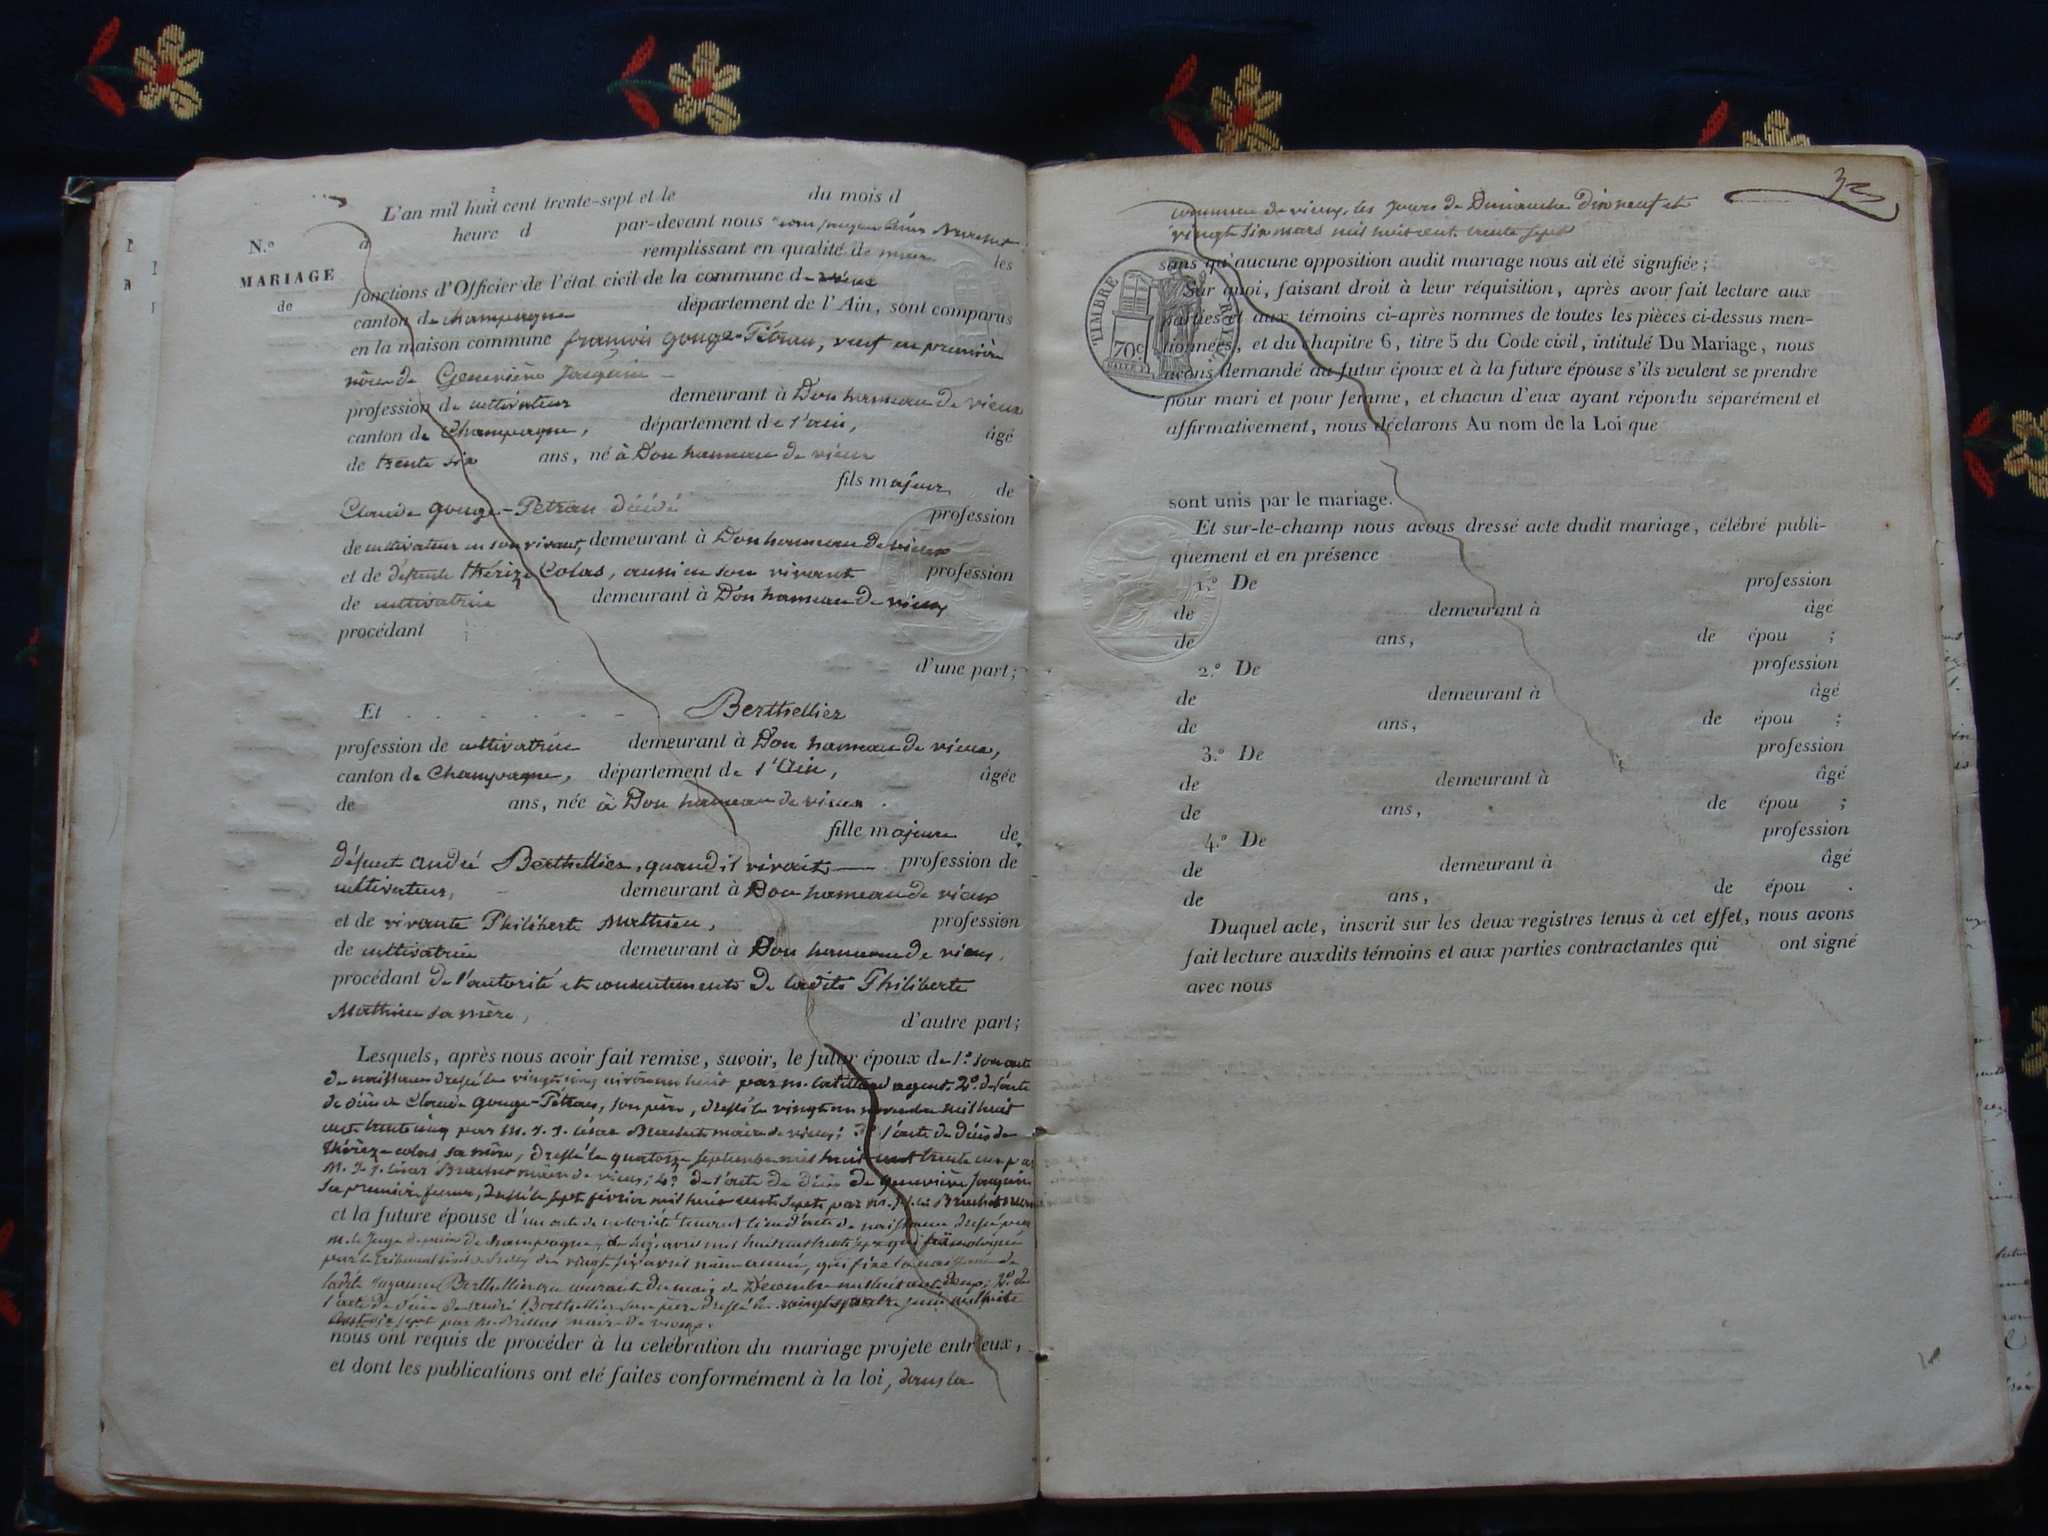 L'an mil huit cent trente-sept et le du mois d
N.º à heure d par-devant nous
remplissant en qualité de maire les
MARIAGE
de
fonctions d'Officier de l'état civil de la commune de vieux
canton de champagne département de l'Ain, sont comparus
en la maison commune françois gouge-Pétran, veuf en première
nôce de Geneviève Jacquin
profession de cultivateur demeurant à Don hameau de vieux
canton de Champagne, département de l'ain, âgé
de trente six ans, né à Don hameau de vieux
fils majeur de
Claude gouge-Pétran décédé profession
de cultivateur en son vivant, demeurant à Don hameau de vieux
et de défunte thérèze Colas, aussi en son vivant profession
de cultivatrice demeurant à Don hameau de vieux
procédant ;
d'une part;
Et Berthellier
profession de cultivatrice demeurant à Don hameau de vieux,
canton de Champagne, département de l'Ain, âgée
de ans, née à Don hameau de vieux.
fille majeure de
défunt andré Berthellier, quand il vivait profession de
cultivateur, demeurant à Don hameau de vieux
et de vivante Philiberte Mathieu, profession
de cultivatrice demeurant à Don hameau de vieux,
procédant de l'autorité et consentement de ladite Philiberte
Mathieu sa mère, d'autre part;
Lesquels, après nous avoir fait remise, savoir, le futur époux de 1.º son acte
de naissance dressé le vingt cinq nivôse an huit par m. agent. 2.º de l'acte
de décès de Claude gouge-Pétran, son père, dressé le vingt un novembre mil huit
cent trente cinq par M. J. J. César maire de vieux; 3.º l'acte de décès de
thérèze colas sa mère, dressé le quatorze septembre mil huit cent trente un par
M. J. J. César maire de vieux; 4.º de l'acte de décès de geneviève Jacquin
sa première femme, dressé le sept février mil huit cent trente sept par m.
et la future épouse d'un acte de notoriété tenant lieu d'acte de naissance dressé par
m. le Juge de paix de champagne, avril mil huit cent trente sept
par le tribunal civil de Belley du vingt six avril même année, qui fixe la naissance de
ladite Berthellier au courant du mois de Décembre mil huit cent deux; 2.º de
l'acte de décès de andré Berthellier son père dressé le juin mil huit
cent dix sept par m. maire de vieux.
nous ont requis de procéder à la célébration du mariage projeté entr'eux,
et dont les publications ont été faites conformément à la loi, dans la
commune de vieux, les jours de Dimanche dix neuf et
vingt six mars mil huit cent trente sept
sans qu'aucune opposition audit mariage nous ait été signifiée;
TIMBRE ROYAL
70c
Sur quoi, faisant droit à leur réquisition, après avoir fait lecture aux
parties et aux témoins ci-après nommés de toutes les pièces ci-dessus men-
tionnées, et du chapitre 6, titre 5 du Code civil, intitulé Du Mariage, nous
avons demandé au futur époux et à la future épouse s'ils veulent se prendre
pour mari et pour femme, et chacun d'eux ayant répondu séparément et
affirmativement, nous déclarons Au nom de la Loi que
sont unis par le mariage.
Et sur-le-champ nous avons dressé acte dudit mariage, célébré publi-
quement et en présence
1.º De profession
de demeurant à âgé
de ans, de épou ;
2.º De profession
de demeurant à âgé
de ans, de épou ;
3.º De profession
de demeurant à âgé
de ans, de épou ;
4.º De profession
de demeurant à âgé
de ans, de épou .
Duquel acte, inscrit sur les deux registres tenus à cet effet, nous avons
fait lecture auxdits témoins et aux parties contractantes qui ont signé
avec nous